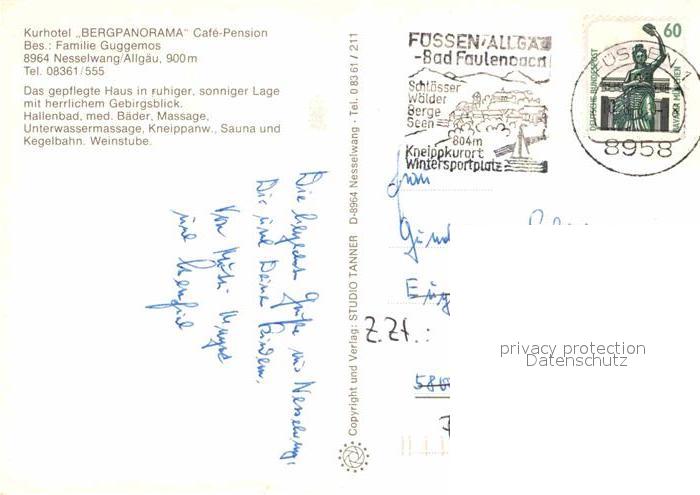 Kurhotel „BERGPANORAMA“ Café-Pension
Bes.: Familie Guggemos
8964 Nesselwang/Allgäu, 900 m
Tel. 08361/555
Das gepflegte Haus in ruhiger, sonniger Lage
mit herrlichem Gebirgsblick.
Hallenbad, med. Bäder, Massage,
Unterwassermassage, Kneippanw., Sauna und
Kegelbahn. Weinstube.
Die herzlichsten Grüße aus Nesselwang,
Dir und Deinen Kindern.
Von
und
Copyright und Verlag: STUDIO TANNER D-8964 Nesselwang - Tel. 08361/211
FÜSSEN/ALLGÄU
-Bad Faulenbach
Schlösser
Wälder
Berge
Seen
804m
Kneippkurort
Wintersportplatz
60
DEUTSCHE BUNDESPOST
BAVARIA MÜNCHEN
FÜSSEN 1
8958
Frau
Z.Zt.:
580
privacy protection
Datenschutz